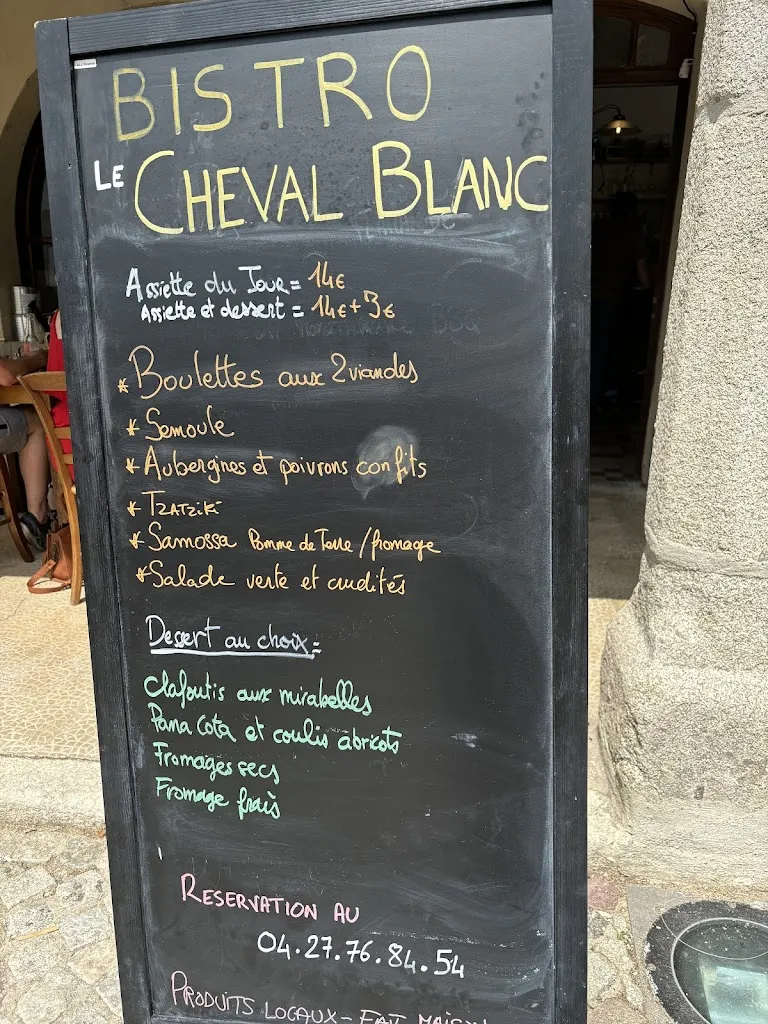 BISTRO
LE CHEVAL BLANC
Assiette du Jour = 14€
Assiette et dessert = 14€ + 3€
* Boulettes aux 2 viandes
* Semoule
* Aubergines et poivrons confits
* TZATZIKI
* Samossa Pomme de Terre / fromage
* Salade verte et crudités
Dessert au choix =
Clafoutis aux mirabelles
Pana Cota et coulis abricots
Fromages secs
Fromage frais
RESERVATION AU
04.27.76.84.54
PRODUITS LOCAUX - FAIT MAISON